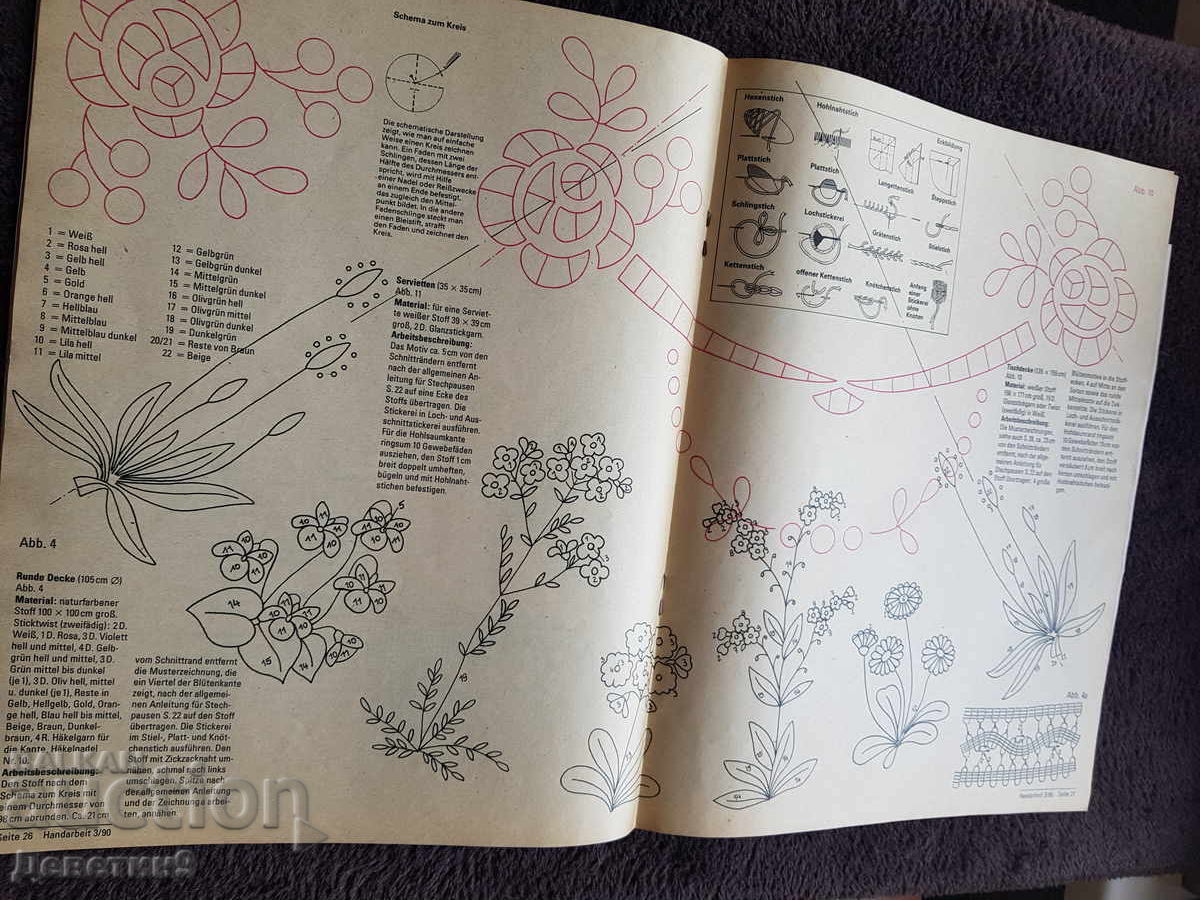 Schema zum Kreis
Die schematische Darstellung
zeigt, wie man auf einfache
Weise einen Kreis zeichnen
kann. Ein Faden mit zwei
Schlingen, dessen Länge der
Hälfte des Durchmessers ent
spricht, wird mit Hilfe
einer Nadel oder Reißzwecke
an einem Ende befestigt.
das zugleich den Mittel-
punkt bildet. In die andere
Fadenschlinge steckt man
einen Bleistift, strafft
den Faden und zeichnet den
Kreis.
1 = Weiß
2 = Rosa hell
3 = Gelb hell
4 = Gelb
5 = Gold
6 = Orange hell
7 = Hellblau
8 = Mittelblau
9 = Mittelblau dunkel
10 = Lila hell
11 = Lila mittel
12 = Gelbgrün
13 = Gelbgrün dunkel
14 = Mittelgrün
15 = Mittelgrün dunkel
16 = Olivgrün hell
17 = Olivgrün mittel
18 = Olivgrün dunkel
19 = Dunkelgrün
20/21 = Reste von Braun
22 = Beige
Servietten (35 × 35cm)
Abb. 11
Material: für eine Serviet-
te weißer Stoff 39 × 39 cm
groß, 2 D. Glanzstickgarn.
Arbeitsbeschreibung:
Das Motiv ca. 5 cm von den
Schnitträndern entfernt
nach der allgemeinen An-
leitung für Stechpausen
S. 22 auf eine Ecke des
Stoffs übertragen. Die
Stickerei in Loch- und Aus-
schnittstickerei ausführen.
Für die Hohlsaumkante
ringsum 10 Gewebefäden
ausziehen, den Stoff 1 cm
breit doppelt umheften,
bügeln und mit Hohlnaht-
stichen befestigen.
Abb. 4
Runde Decke (105 cm ∅)
Abb. 4
Material: naturfarbener
Stoff 100 × 100 cm groß.
Sticktwist (zweifädig): 2 D.
Weiß, 1 D. Rosa, 3 D. Violett
hell und mittel, 4 D. Gelb-
grün hell und mittel, 3 D.
Grün mittel bis dunkel
(je 1), 3 D. Oliv hell, mittel
u. dunkel (je 1), Reste in
Gelb, Hellgelb, Gold, Oran-
ge hell, Blau hell bis mittel,
Beige, Braun, Dunkel-
braun, 4 R. Häkelgarn für
die Kante, Häkelnadel
Nr. 10.
Arbeitsbeschreibung:
Den Stoff nach dem
Schema zum Kreis mit
einem Durchmesser von
98 cm abrunden. Ca. 21 cm
vom Schnittrand entfernt
die Musterzeichnung, die
ein Viertel der Blütenkante
zeigt, nach der allgemei-
nen Anleitung für Stech-
pausen S. 22 auf den Stoff
übertragen. Die Stickerei
im Stiel-, Platt- und Knöt-
chenstich ausführen. Den
Stoff mit Zickzacknaht um-
nähen, schmal nach links
umschlagen. Spitze nach
der allgemeinen Anleitung
und der Zeichnung arbei-
ten, annähen.
Seite 26 Handarbeit 3/90
Hexenstich
Hohlnahtstich
Eckbildung
Plattstich
Plattstich
Langettenstich
Steppstich
Schlingstich
Lochstickerei
Grätenstich
Stielstich
Kettenstich
offener Kettenstich
Knötchenstich
Anfang
einer
Stickerei
ohne
Knoten
Abb. 10
Tischdecke
Abb. 10
Material: weißer Stoff
Arbeitsbeschreibung:
Abb. 4a
Handarbeit 3/90 · Seite 27
BALKAN
auction
Деветин9